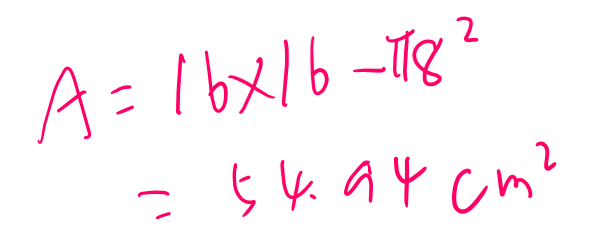 A = 16×16 - π8²
= 54.94 cm²